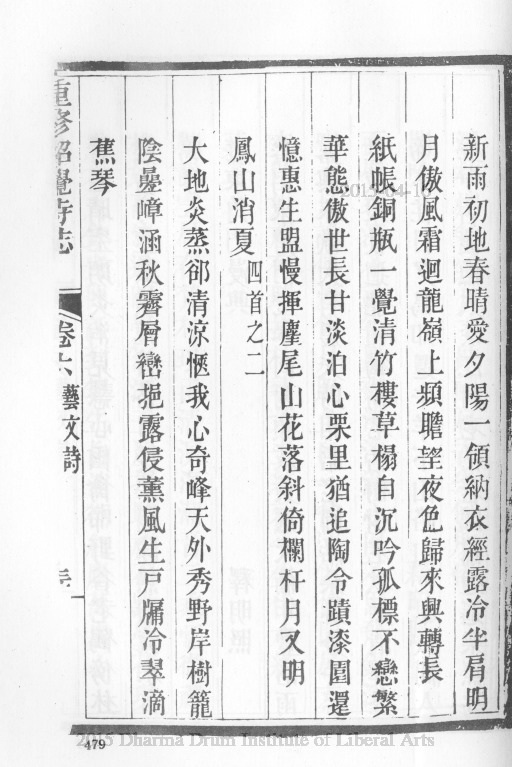 新雨初地春晴愛夕陽一領納衣經露冷半肩明
月傲風霜迴龍嶺上頻瞻望夜色歸來興轉長
紙帳銅瓶一覺清竹樓草榻自沉吟孤標不戀繁
華態傲世長甘淡泊心栗里猶追陶令蹟漆園還
憶惠生盟慢揮麈尾山花落斜倚欄杆月又明
鳳山消夏 四首之二
大地炎蒸郤清涼愜我心奇峰天外秀野岸樹籠
陰疊嶂涵秋霽層巒挹露侵薰風生戸牖冷翠滴
蕉琴
重修昭覺寺志
卷六 藝文詩
479
2015 Dharma Drum Institute of Liberal Arts